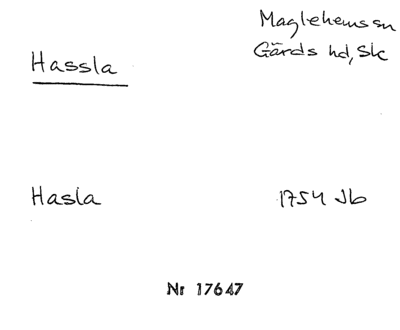 Maglehems sn
Hassla
Gärds hd, Sk
Hasla
1754 Jb
Nr 17647